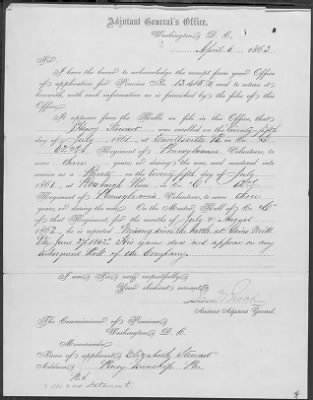 Adjutant General's Office,
Washington, D. C.
April 6, 1863
Sir:
I have the honor to acknowledge the receipt from your Office
of application for Pension No. 13.418, and to return it
herewith, with such information as is furnished by the files of this
Office.
It appears from the Rolls on file in this Office, that
Henry Stewart was enrolled on the twenty fifth
day of July 1861, at in Co.
62nd Regiment of Pennsylvania Volunteers, to
serve three years, or during the war, and mustered into
service as a Private on the twenty fifth day of July
1861, at Pittsburgh Penn in Co. "C" 62nd
Regiment of Pennsylvania Volunteers, to serve three
years, or during the war. On the Muster Roll of Co. "C"
of that Regiment, for the months of July & August
1862, he is reported "Missing since the battle at Gaines Mill
Va June 27 1862. His name does not appear on any
subsequent Roll of the Company.
I am, Sir, very respectfully,
Your obedient servant,
Assistant Adjutant General.
The Commissioner of Pensions
Washington, D. C.
Memoranda:
Name of applicant, Elizabeth Stewart
Address, Perry Township Pa.